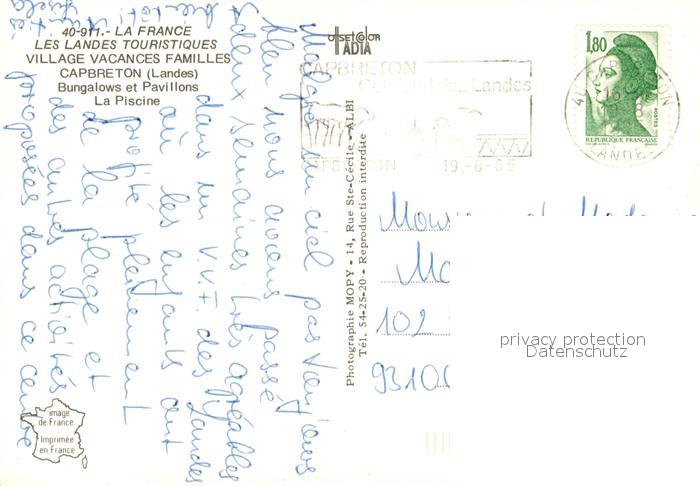 40-911.- LA FRANCE
LES LANDES TOURISTIQUES
VILLAGE VACANCES FAMILLES
CAPBRETON (Landes)
Bungalows et Pavillons
La Piscine
Malgré un ciel pas toujours
bleu nous avons passé
deux semaines très agréables
dans un V.V.F. des Landes
où les enfants ont
profité pleinement
de la plage et
des autres activités
proposées dans ce centre
image
de France
Imprimée
en France
OFFSETCOLOR
TADIA
Photographie MOPY - 14, Rue Ste-Cécile - ALBI
Tél. 54-25-20 - Reproduction interdite
CAPBRETON
des Landes
CAPBRETON 19-8-86
1,80
POSTES
REPUBLIQUE FRANÇAISE
40 CAPBRETON
LANDES
102
93100
privacy protection
Datenschutz